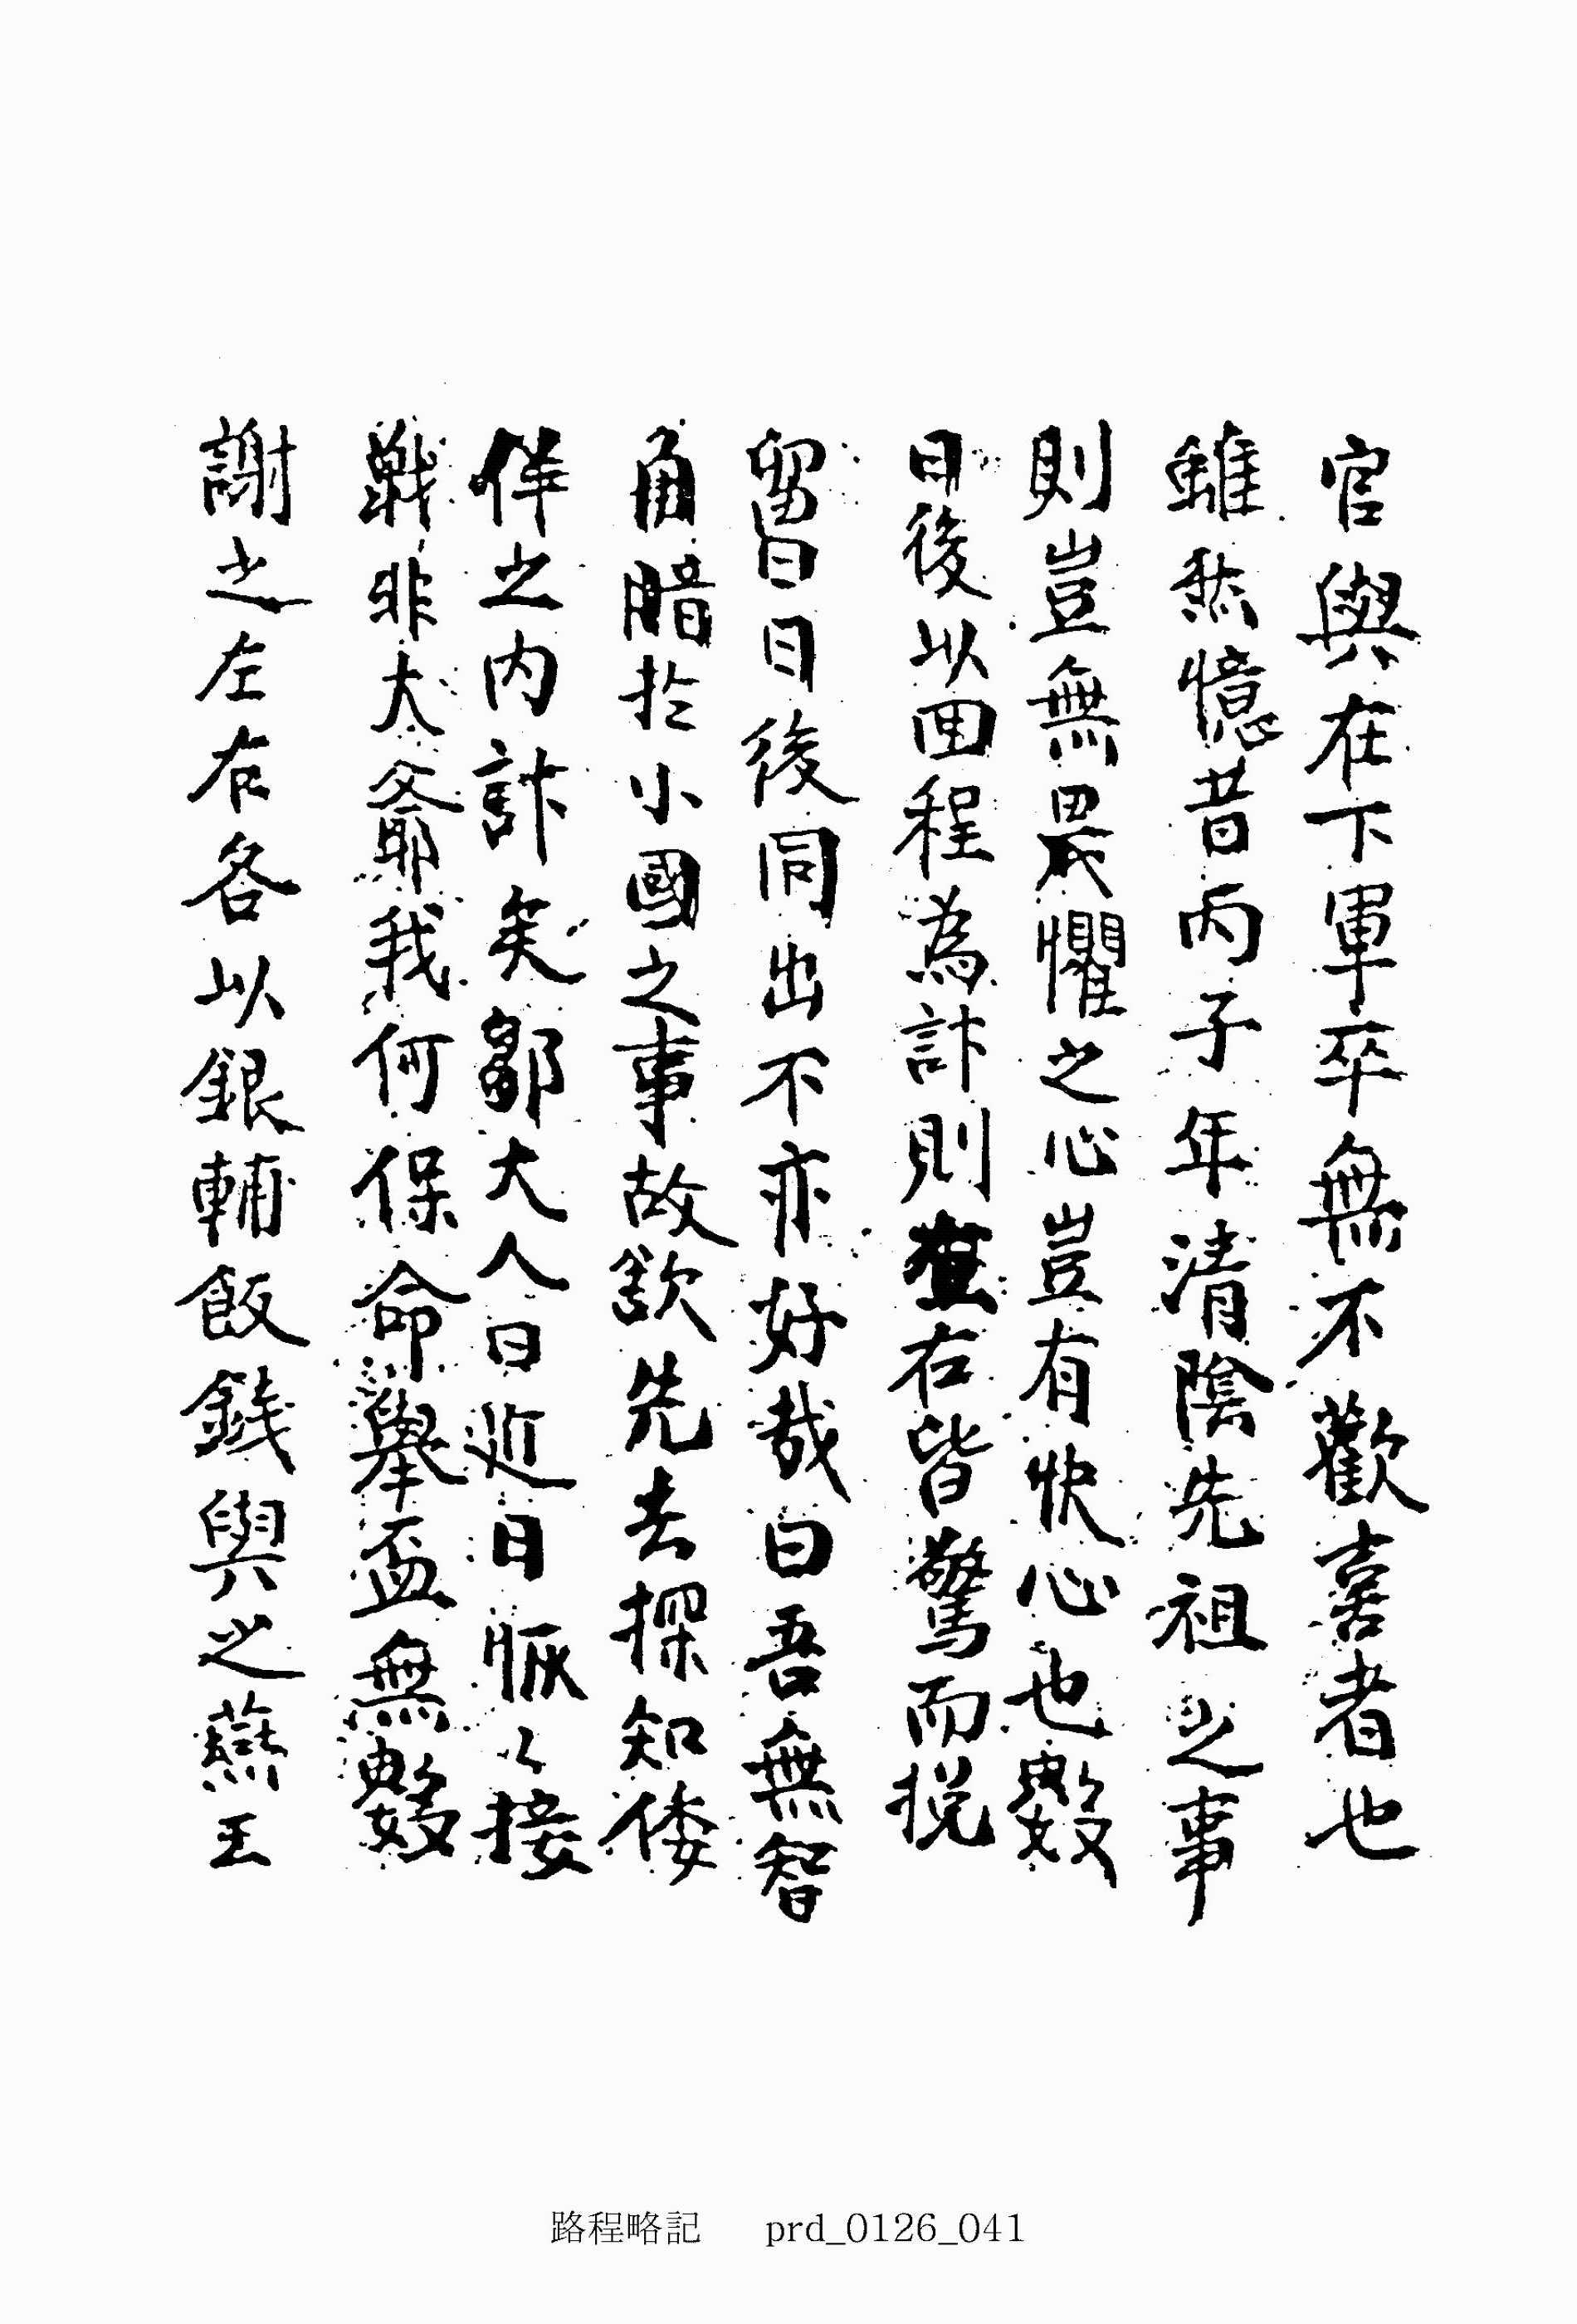 官與在下軍卒無不歡喜者也
雖然憶昔丙子年清陰先祖之事
則豈無畏懼之心豈有快心也數
日後以囬程為計則左右皆驚而挽
留曰日後同出不亦好哉曰吾無智
角暗扵小國之事故欲先去探知倭
佯之內計矣鄒大人曰近日脈々接
戰非大爺我何保命擧盃無數
謝之左右各以銀輔飯錢與之燕王
路程略記 prd_0126_041